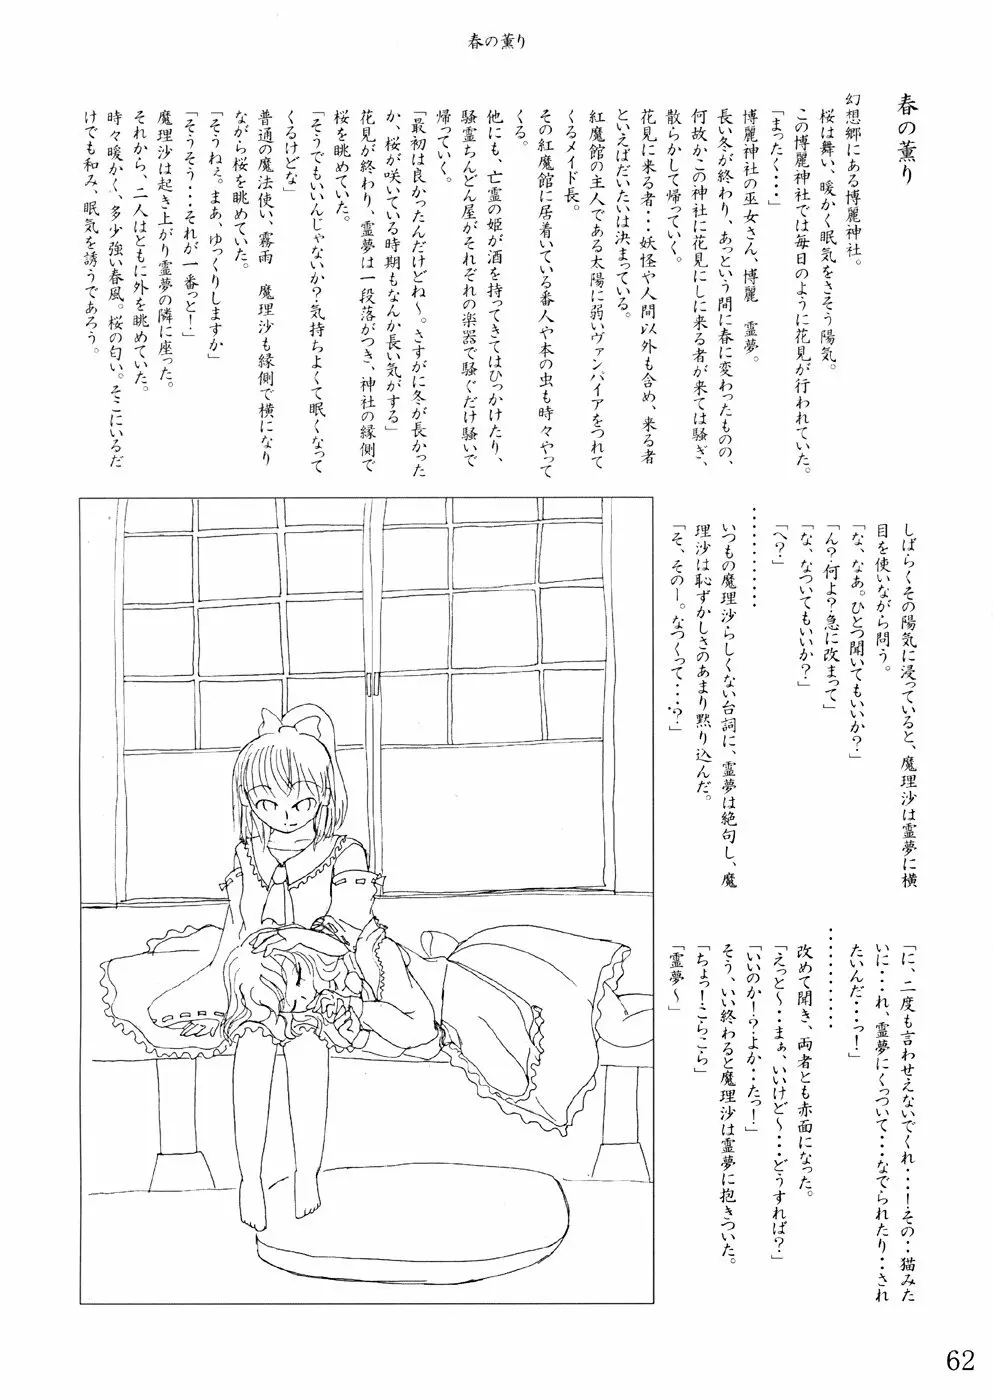 春の薫り
春の薫り
幻想郷にある博麗神社。
桜は舞い、暖かく眠気をさそう陽気。
この博麗神社では毎日のように花見が行われていた。
「まったく・・・」
博麗神社の巫女さん、博麗　霊夢。
長い冬が終わり、あっという間に春に変わったものの、
何故かこの神社に花見にしに来る者が来ては騒ぎ、
散らかして帰っていく。
花見に来る者・・・妖怪や人間以外も含め、来る者
といえばだいたいは決まっている。
紅魔館の主人である太陽に弱いヴァンパイアをつれて
くるメイド長。
その紅魔館に居着いている番人や本の虫も時々やって
くる。
他にも、亡霊の姫が酒を持ってきてはひっかけたり、
騒霊ちんどん屋がそれぞれの楽器で騒ぐだけ騒いで
帰っていく。
「最初は良かったんだけどね～。さすがに冬が長かった
か、桜が咲いている時期もなんか長い気がする」
花見が終わり、霊夢は一段落がつき、神社の縁側で
桜を眺めていた。
「そうでもいいんじゃないか？気持ちよくて眠くなって
くるけどな」
普通の魔法使い、霧雨　魔理沙も縁側で横になり
ながら桜を眺めていた。
「そうねぇ。まあ、ゆっくりしますか」
「そうそう・・・それが一番っと！」
魔理沙は起き上がり霊夢の隣に座った。
それから、二人はともに外を眺めていた。
時々暖かく、多少強い春風。桜の匂い。そこにいるだ
けでも和み、眠気を誘うであろう。
しばらくその陽気に浸っていると、魔理沙は霊夢に横
目を使いながら問う。
「な、なあ。ひとつ聞いてもいいか？」
「ん？何よ？急に改まって」
「な、なついてもいいか？」
「へ？」
・・・・・・・・・・
いつもの魔理沙らしくない台詞に、霊夢は絶句し、魔
理沙は恥ずかしさのあまり黙り込んだ。
「そ、そのー。なつくって・・・？」
「に、二度も言わせえないでくれ・・・！その・・猫みた
いに・・・れ、霊夢にくっついて・・・なでられたり・・され
たいんだ・・・っ！」
・・・・・・・・・・
改めて聞き、両者とも赤面になった。
「えっと～・・・まぁ、いいけど～・・・どうすれば？」
「いいのか！？よか・・たっ！」
そう、いい終わると魔理沙は霊夢に抱きついた。
「ちょっ！こらこら」
「霊夢～」
62